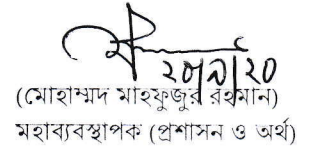 ২০/৯/২০
(মোহাম্মদ মাহফুজুর রহমান)
মহাব্যবস্থাপক (প্রশাসন ও অর্থ)